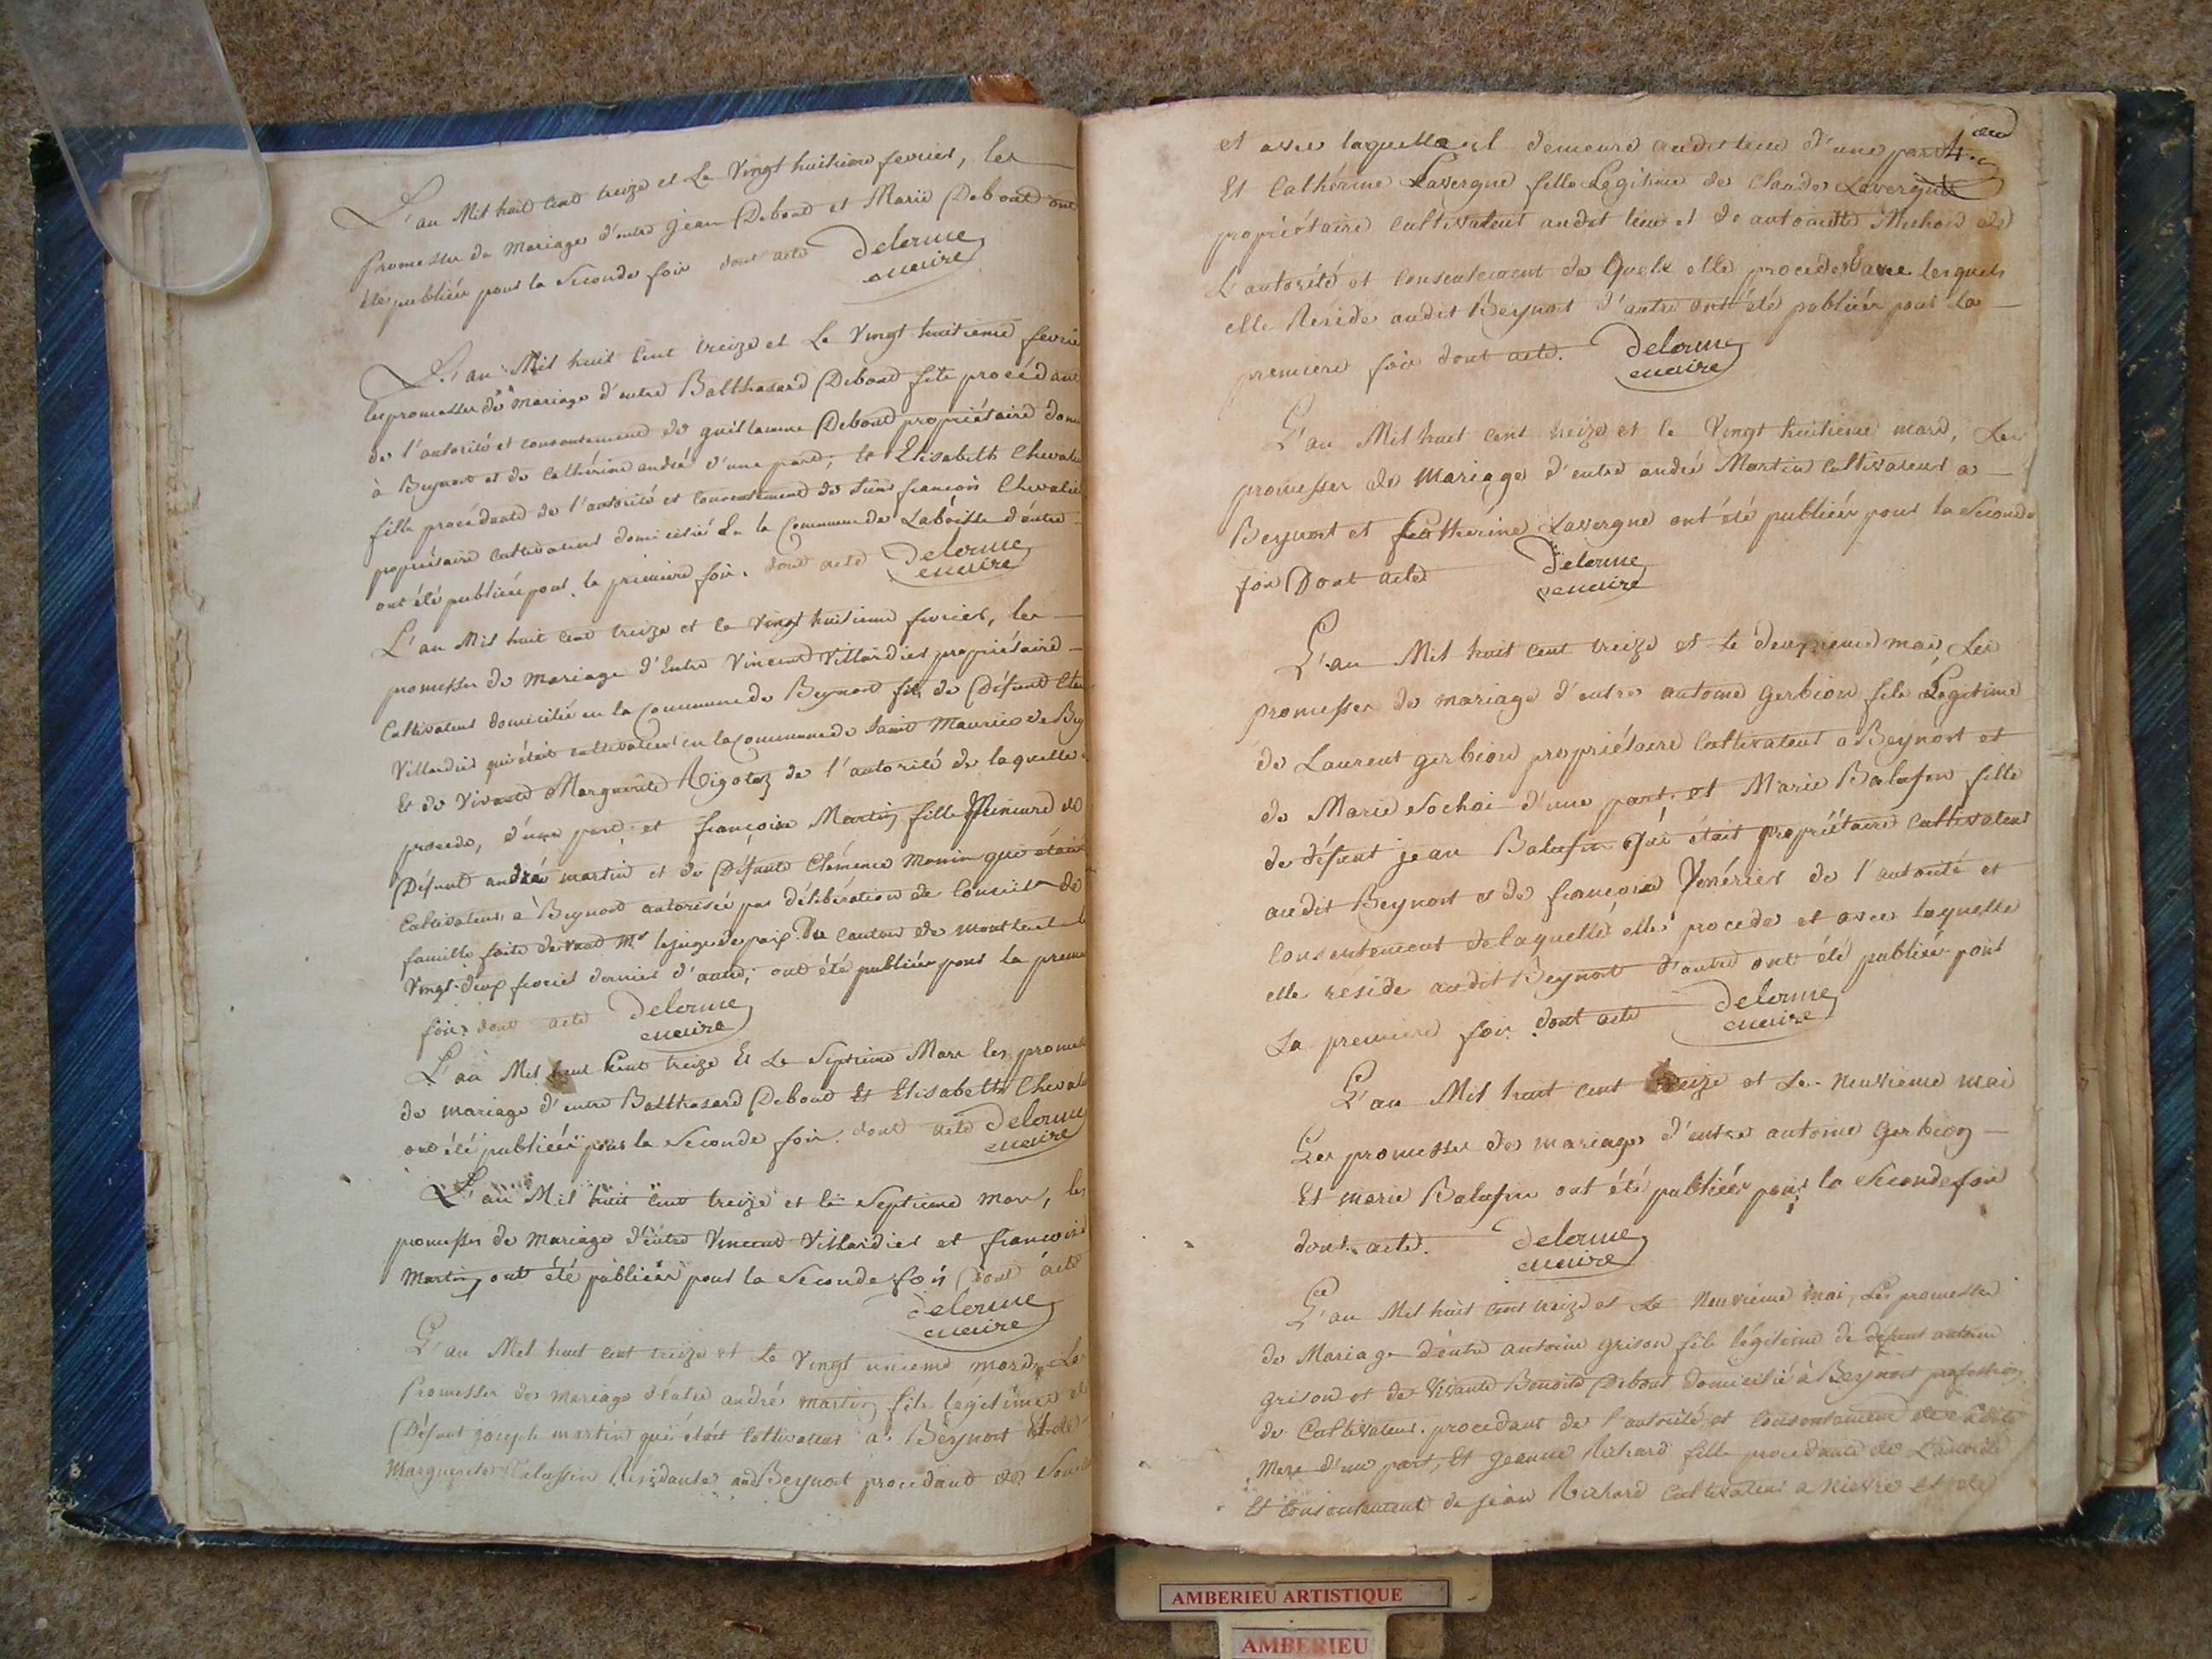 L'an Mil huit cent treize et Le Vingt huitieme fevrier, les
promesses de mariage d'entre Jean Debout et Marie Debout ont
été publiées pour la Seconde fois dont acte Delorme
maire
L'an Mil huit cent treize et Le Vingt huitieme fevrie
les promesses de mariage d'entre Balthazard Debout fils procédant
de l'autorité et consentement de guillaume Debout propriétaire dom
à Beynost et de Cathérine andré d'une part; et Elisabeth Chevali
fille procédante de l'autorité et consentement de françois Chevalie
propriétaire cultivateur domicilié En la Commune de Laboisse d'autre
ont été publiées pour la premiere fois. dont acte Delorme
maire
L'an Mil huit cent treize et le vingt huitieme fevrier, les
promesses de mariage d'Entre Vincent Villardier propriétaire
Cultivateur domicilié en la Commune de Beynost fils de Défunt
Villardier qui était cultivateur en la Commune de Saint Maurice de Bey
Et de Vivante Marguerite Rigotaz de l'autorité de laquelle il
procede, d'une part et françoise Martin fille Mineure de
Défunt andré martin et de Défunte Clémence Monin qui étaient
Cultivateurs à Beynost autorisée par délibération de Conseil de
famille faite devant Mr le juge de paix Du Canton de Montluel le
Vingt-deux fevrier dernier d'autre; ont été publiées pour la premie
fois dont acte Delorme
maire
L'an Mil huit Cent treize Et Le Septieme Mars les promes
de mariage d'entre Balthazard Debout Et Elisabeth Chevali
ont été publiées pour la Seconde fois. dont acte Delorme
maire
L'an Mil huit Cent treize et le Septieme mars, les
promesses de mariage d'entre Vincent Villardier et françoise
Martin ont été publiées pour la Seconde fois dont acte
Delorme
maire
L'an Mil huit cent treize et Le Vingt unieme mars, Les
Promesses de mariage d'entre andré martin fils légitime de
Défunt joseph martin qui était Cultivateur à Beynost Et de
Marguerite Balaffin Résidante audit Beynost procédant de
et avec laquelle il demeure audit lieu d'une part 4
Et Cathérine Lavergne fille Legitime de Claude Lavergne
propriétaire Cultivateur audit lieu et de antoinette
L'autorité et consentement de Quels elle procede avec lesquels
elle Réside audit Beynost d'autre ont été publiées pour la
premiere fois dont acte. Delorme
maire
L'an Mil huit cent treize et le Vingt huitieme mars, Les
promesses de Mariage d'entre andré Martin Cultivateur a
Beynost et Catherine Lavergne ont été publiées pour la Seconde
fois Dont acte Delorme
maire
L'an Mil huit cent treize et le deuxieme mai, Les
promesses de mariage d'entre antoine gerbion fils Légitime
de Laurent gerbion propriétaire Cultivateur a Beynost et
de Marie Sochai d'une part. et Marie Balafin fille
de défunt jean Balafin Qui était propriétaire Cultivateur
audit Beynost et de françoise Venérier de l'autorité et
Consentement de laquelle elle procede et avec laquelle
elle réside audit Beynost d'autre ont été publiées pour
La premiere fois dont acte Delorme
maire
L'an Mil huit cent treize et Le neuvieme mai
Les promesses de mariage d'entre antoine Gerbion
Et marie Balafin ont été publiées pour la Seconde fois
dont acte. Delorme
maire
L'an Mil huit cent treize et Le Neuvieme mai, Les promesses
de Mariage d'entre antoine Grison fils légitime de défunt antoine
Grison et de Vivante Benoite Debout domicilié à Beynost profession
de Cultivateur. procedant de l'autorité et Consentement de Ladite
Mere d'une part, Et Jeanne Richard fille procedante de L'autorité
Et Consentement de jean Richard Cultivateur a Nievre Et de
AMBERIEU ARTISTIQUE
AMBERIEU